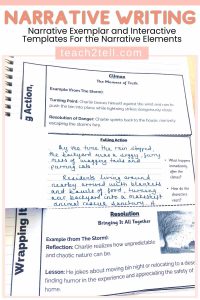 NARRATIVE WRITING
Narrative Exemplar and Interactive
Templates For the Narrative Elements
teach2tell.com
Climax
The Moment of Truth
Example (from The Storm):
Turning Point: Charlie throws himself against the wind and runs to
push the van into place while lightning strikes dangerously close.
Resolution of Danger: Charlie sprints back to the house, narrowly
escaping the storm's fury.
g Action,
Falling Action
By the time the rain stopped,
the backyard was a soggy, furry
mess of wagging tails and
purring cats.
Residents living around
nearby arrived with blankets
and bowls of food, turning
their backyard into a makeshift
animal rescue sanctuary.
What happens
immediately
after the
climax?
How do the
characters
react?
Wrapping It
Resolution
Bringing It All Together
Example (from The Storm):
Reflection: Charlie realizes how unpredictable
and chaotic nature can be.
Lesson: He jokes about moving bin night or relocating to a desert
finding humor in the experience and appreciating the safety of
home.